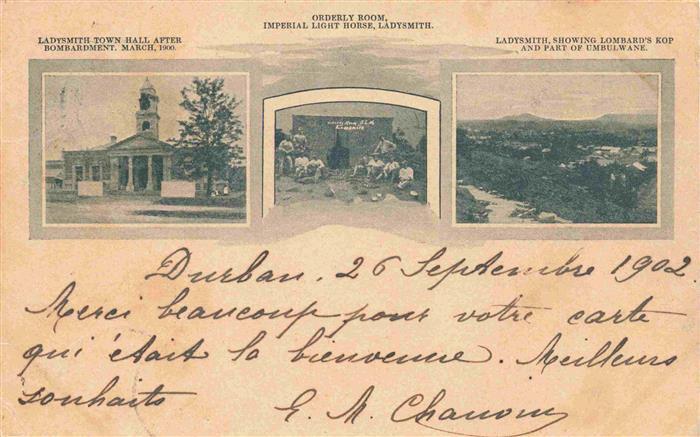 ORDERLY ROOM,
IMPERIAL LIGHT HORSE, LADYSMITH.
LADYSMITH TOWN HALL AFTER
BOMBARDMENT. MARCH, 1900.
LADYSMITH, SHOWING LOMBARD'S KOP
AND PART OF UMBULWANE.
Durban. 26 Septembre 1902.
Merci beaucoup pour votre carte
qui était la bienvenue. Meilleurs
souhaits
E. M.